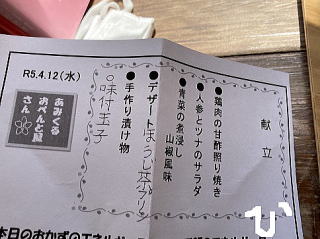 献立
●鶏肉の甘酢照り焼き
●人参とツナのサラダ
●青菜の煮浸し
山椒風味
●デザート ほうじ茶プリン
●手作り漬け物
○味付玉子
R5.4.12(水)
あみくる
おべんと屋
さん
ひ
本日のおかずのエネルギー